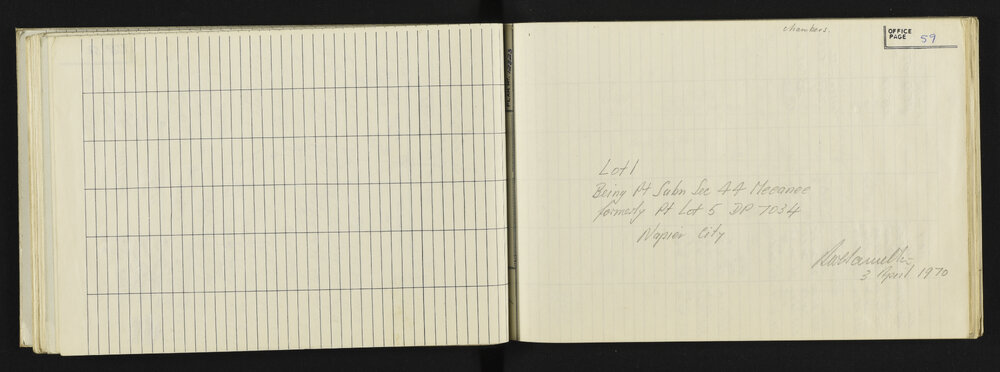 chambers.
OFFICE
PAGE 59
Lot 1
Being Pt Subn Sec 44 Meeanee
formerly Pt Lot 5 DP 7034
Napier City
3 April 1970